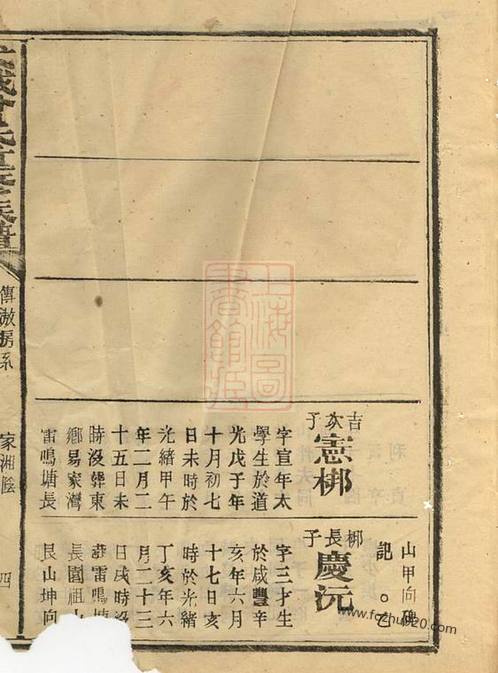 吉次子
憲梆
字宣年太
學生於道
光戊子年
十月初七
日未時於
光緒甲午
年二月二
十五日未
時沒葬東
鄉易家灣
雷鳴塘長
山甲向碑
記○乙
梆長子
慶沅
字三才生
於咸豐辛
亥年六月
十七日亥
時於光緒
丁亥年六
月二十三
日戌時沒
葬雷鳴塘
長園祖山
艮山坤向
氏族譜
傳敬房系
家湘
四
上海圖書館藏
www.fozhu920.com